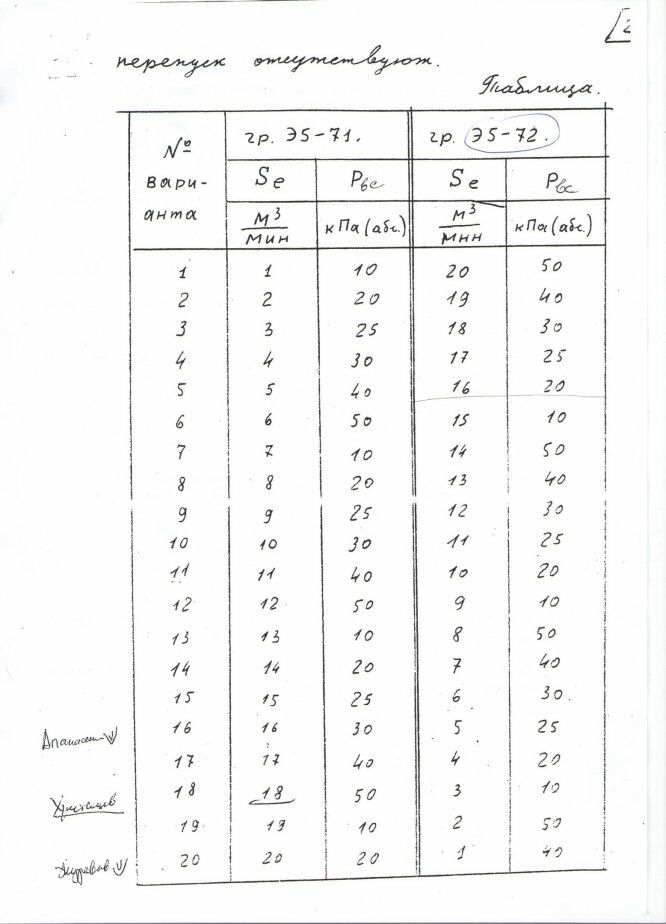 2
перепуск отсутствуют.
Таблица.
№ вари-анта | гр. Э5-71. | гр. Э5-72.
Se | Pвс | Se | Pвс
м³/мин | кПа (абс.) | м³/мин | кПа (абс.)
1 | 1 | 10 | 20 | 50
2 | 2 | 20 | 19 | 40
3 | 3 | 25 | 18 | 30
4 | 4 | 30 | 17 | 25
5 | 5 | 40 | 16 | 20
6 | 6 | 50 | 15 | 10
7 | 7 | 10 | 14 | 50
8 | 8 | 20 | 13 | 40
9 | 9 | 25 | 12 | 30
10 | 10 | 30 | 11 | 25
11 | 11 | 40 | 10 | 20
12 | 12 | 50 | 9 | 10
13 | 13 | 10 | 8 | 50
14 | 14 | 20 | 7 | 40
15 | 15 | 25 | 6 | 30
16 | 16 | 30 | 5 | 25
17 | 17 | 40 | 4 | 20
18 | 18 | 50 | 3 | 10
19 | 19 | 10 | 2 | 50
20 | 20 | 20 | 1 | 40